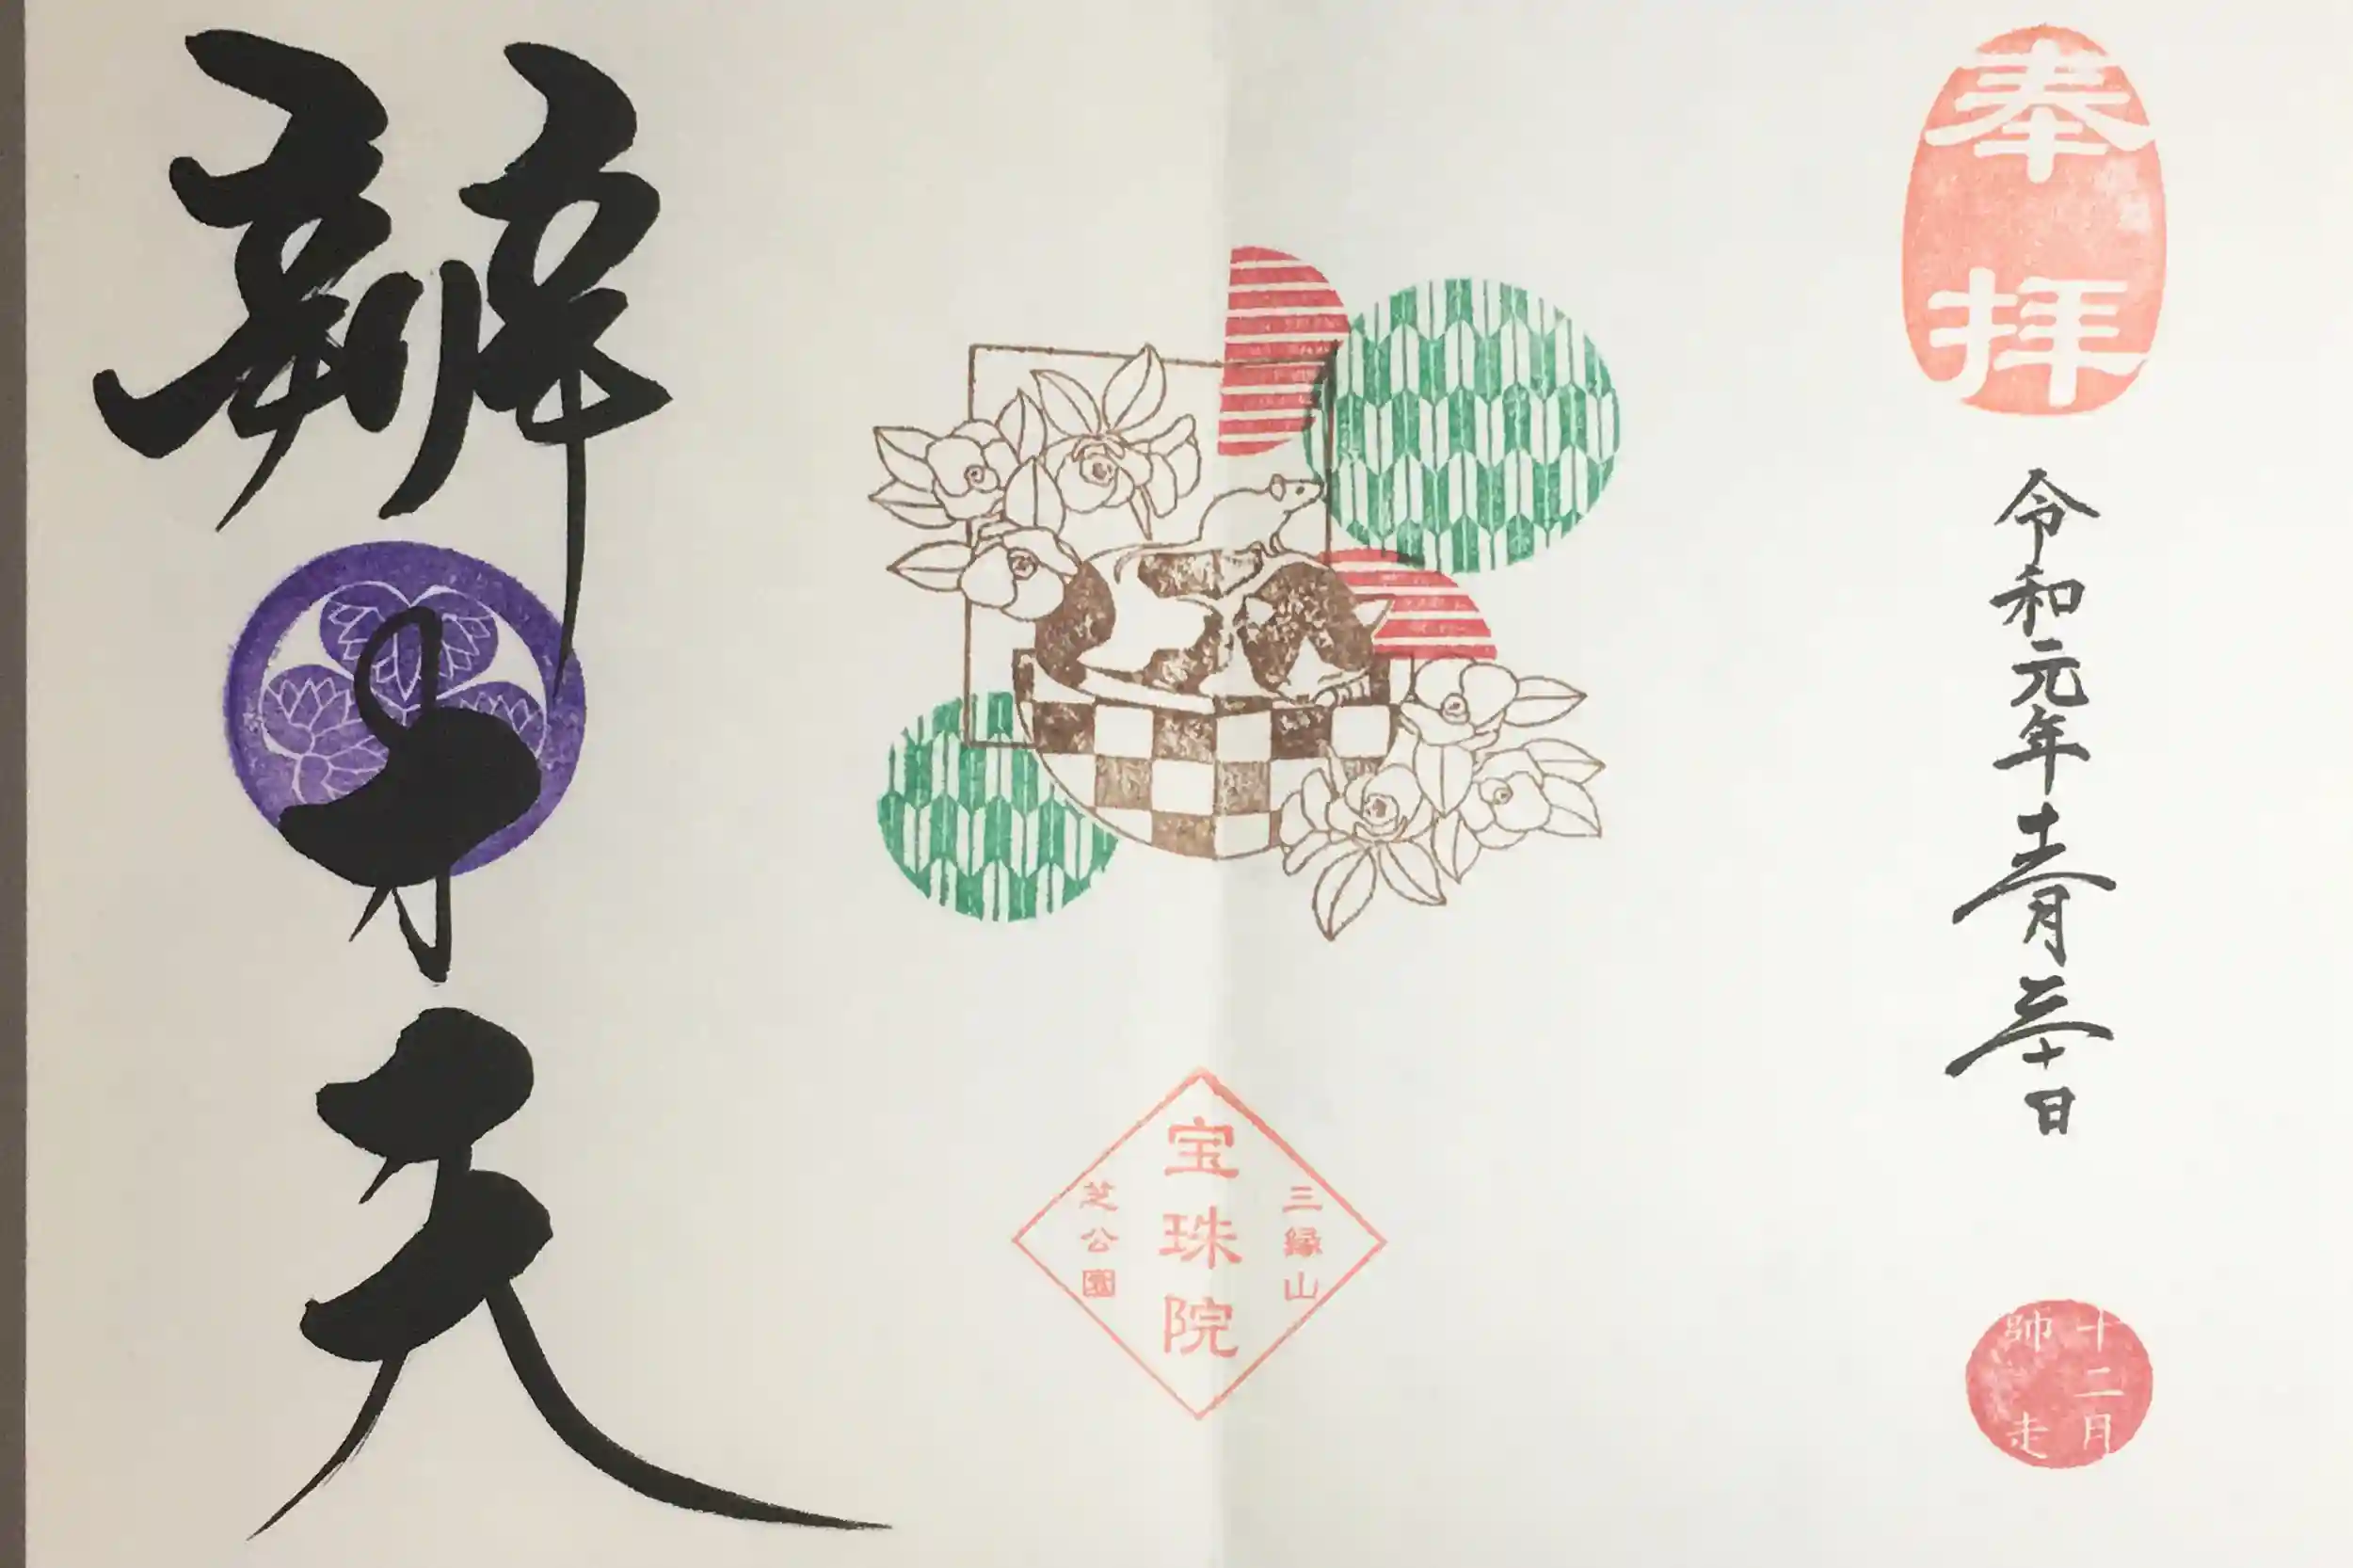 奉拝
令和元年十二月三十日
十二月
師走
三縁山
宝珠院
芝公園
辨才天